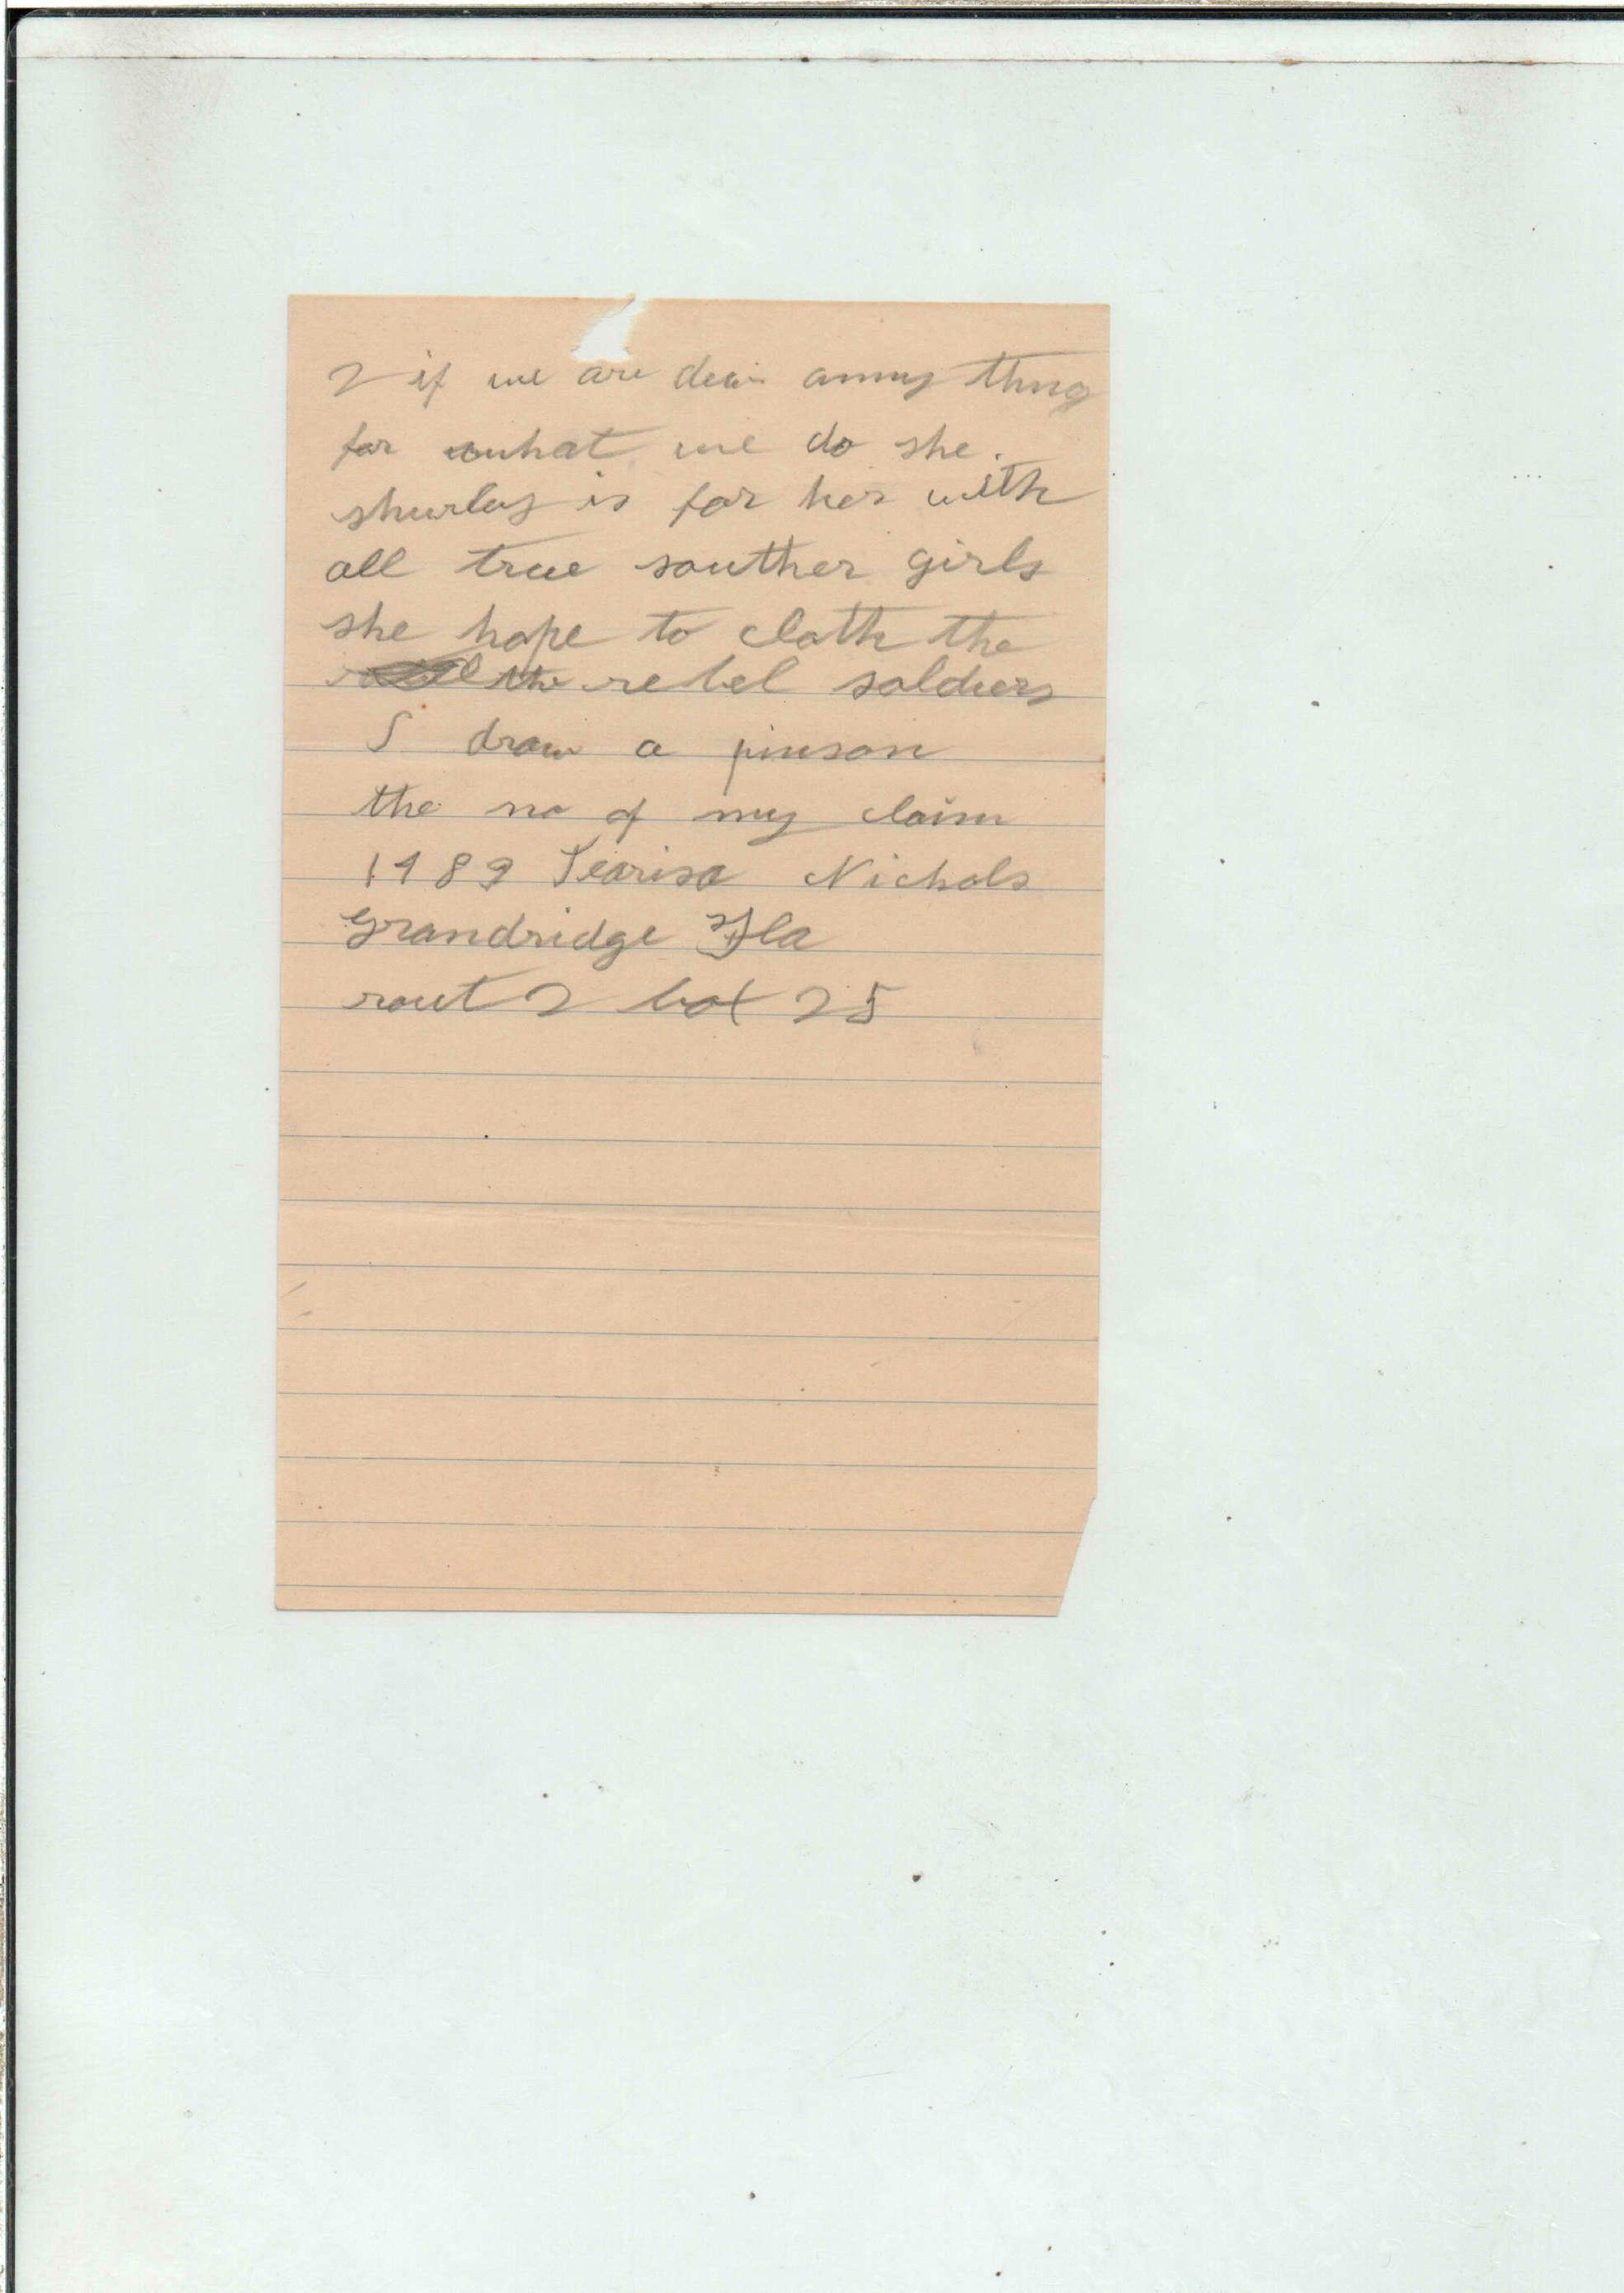 2 if we are dew anny thing
for what we do she
shurley is for her with
all true souther girls
she hope to cloth the
the rebel soldiers
I draw a pinson
the no of my claim
1989 Tearisa Nichols
Grandridge Fla
rout 2 box 25